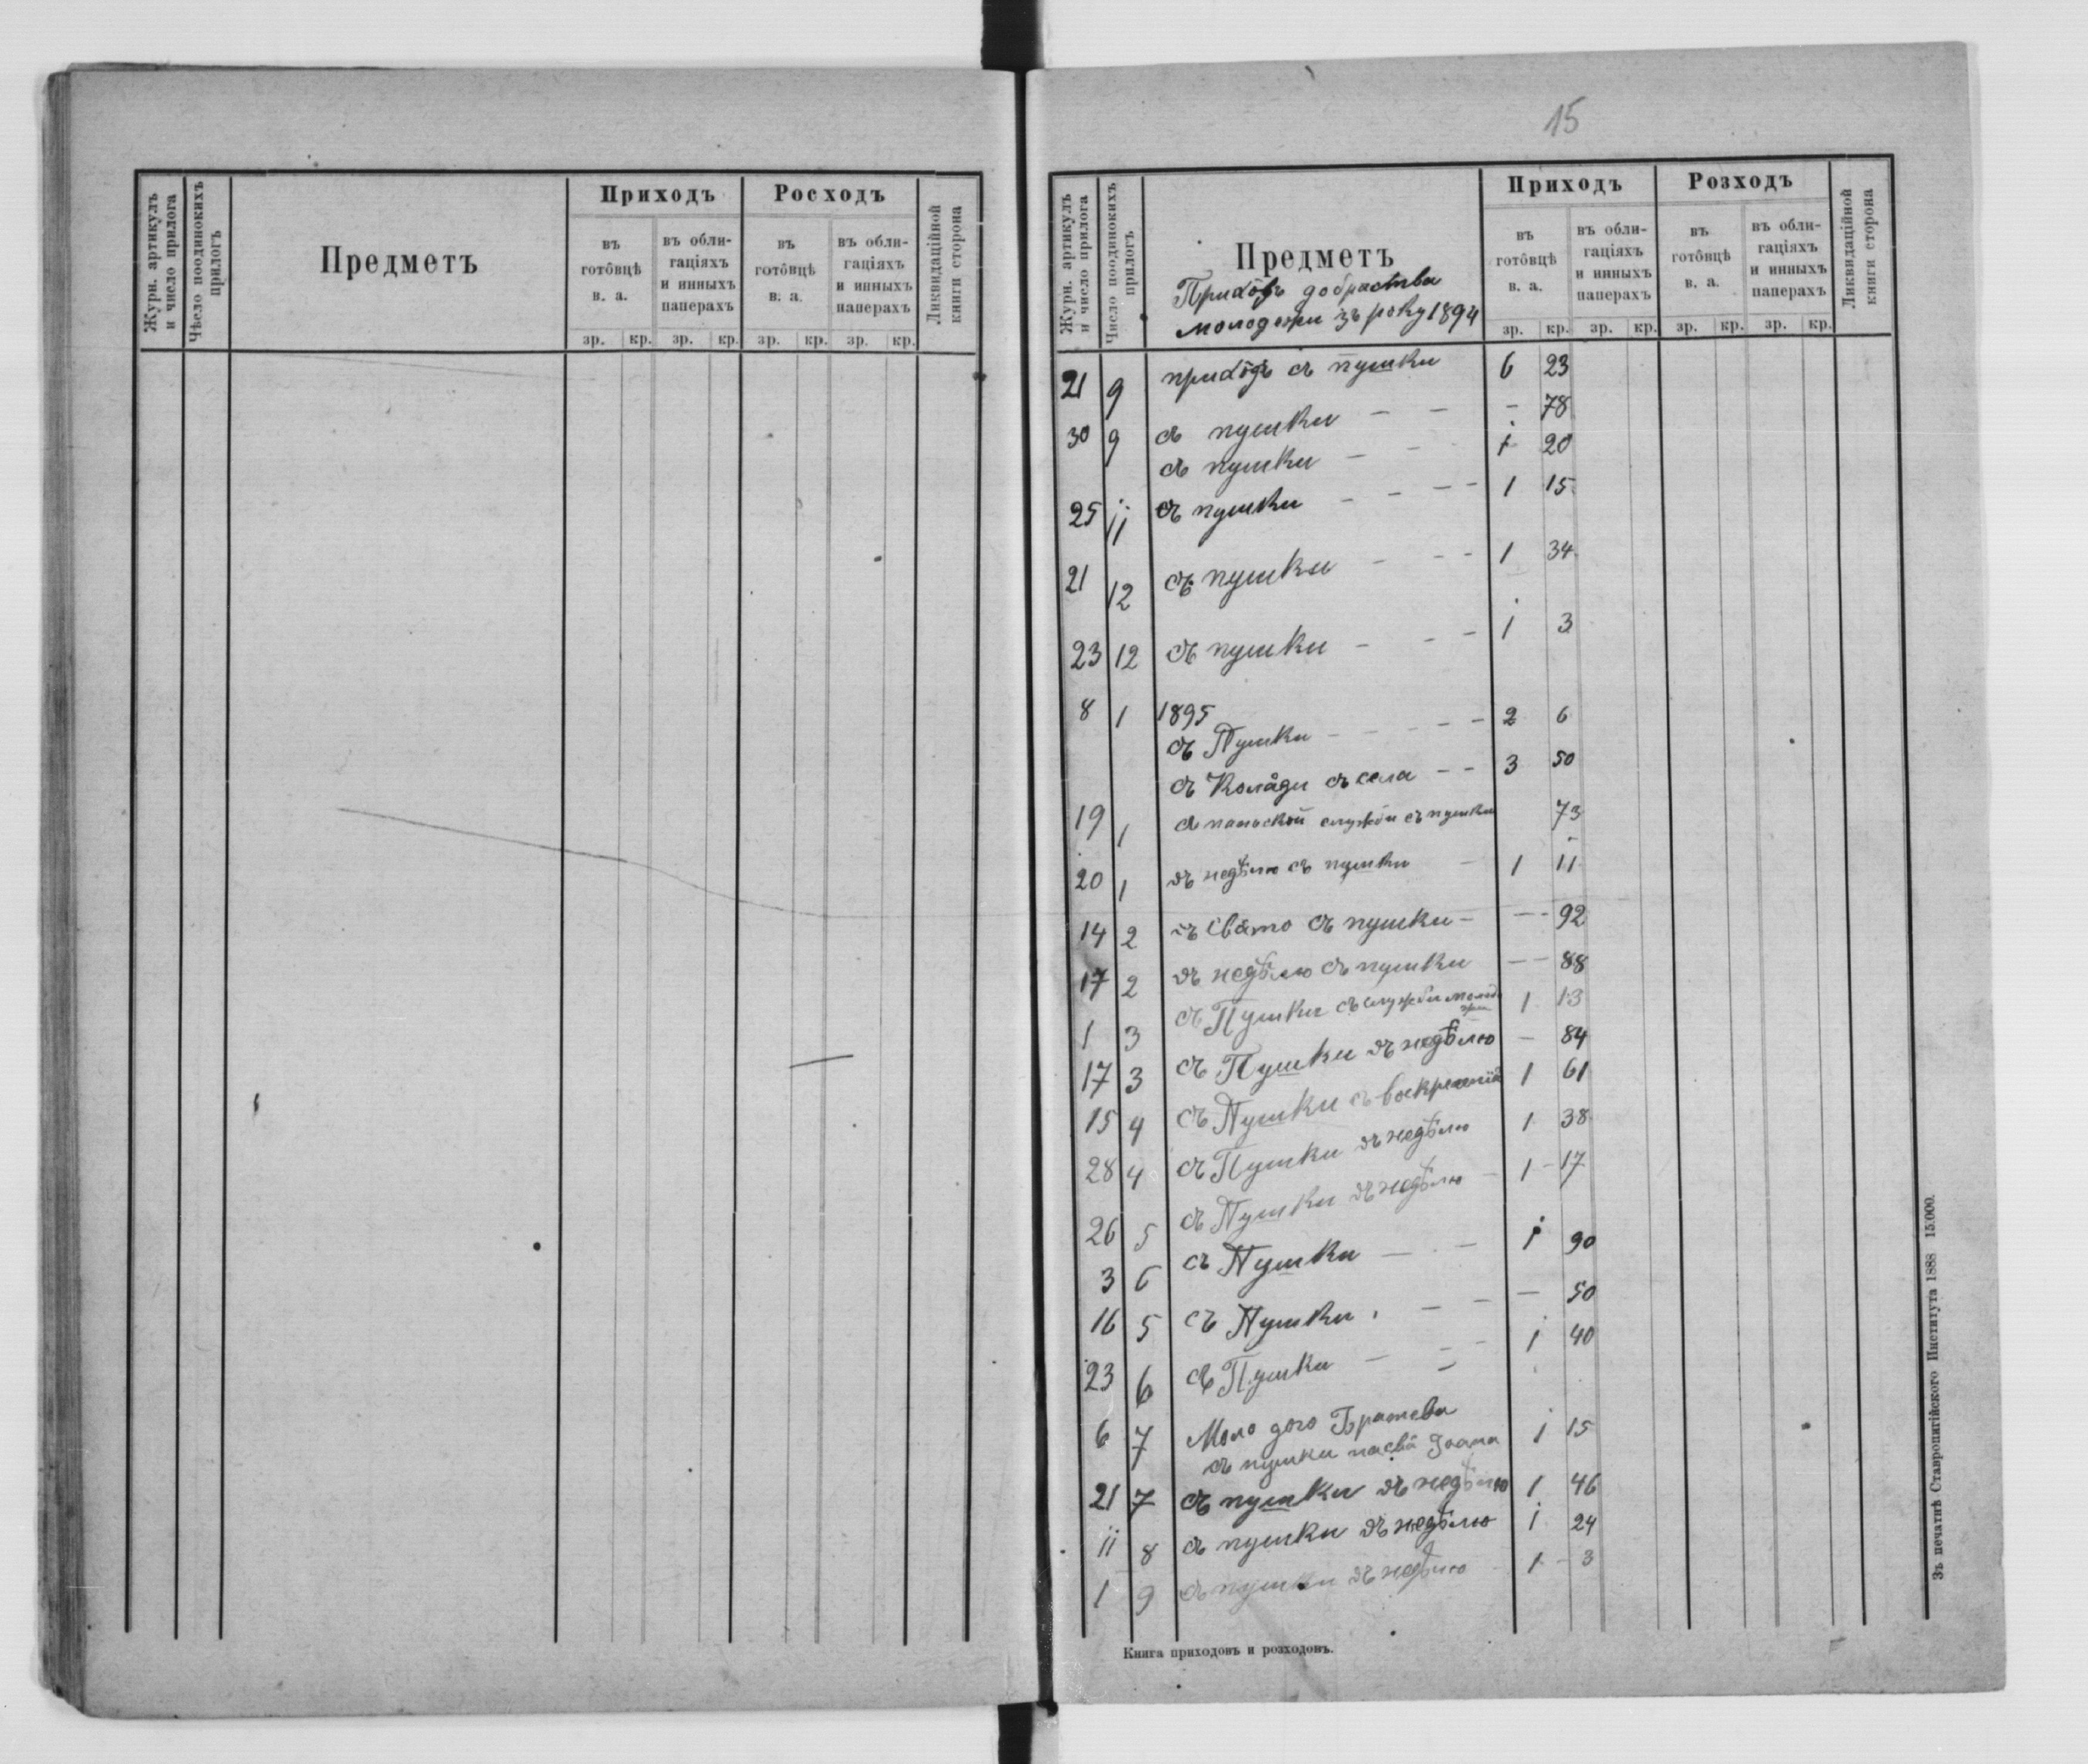 Журн. артикулъ
и число прилога
Чѣсло поодинокихъ
прилогъ
Предметъ
Приходъ
въ
готôвцѣ
в. а.
въ обли-
гаціяхъ
и инныхъ
паперахъ
Росходъ
въ
готôвцѣ
в. а.
въ обли-
гаціяхъ
и инныхъ
паперахъ
Ликвидаційной
книги сторона
зр. кр. зр. кр. зр. кр. зр. кр.
15
Журн. артикулъ
и число прилога
Число поодинокихъ
прилогъ
Предметъ
Приходъ добрацтва
молодежи зъ року 1894
Приходъ
въ
готôвцѣ
в. а.
въ обли-
гаціяхъ
и инныхъ
паперахъ
Розходъ
въ
готôвцѣ
в. а.
въ обли-
гаціяхъ
и инныхъ
паперахъ
Ликвидаційной
книги сторона
зр. кр. зр. кр. зр. кр. зр. кр.
21 9 приходъ съ пушки 6 23
30 9 съ пушки — — — 78
съ пушки — - 1 20
25 11 съ пушки - - - - 1 15
21 12 съ пушки - - - 1 34
23 12 съ пушки - - - 1 3
8 1 1895
съ Пушки - - - - - 2 6
съ Коляди съ села - - 3 50
19 1 съ службы съ пушки 73
20 1 въ недѣлю съ пушки — 1 11
14 2 въ свято съ пушки - — - 92
17 2 въ недѣлю съ пушки — — 88
1 3 съ Пушки съ службы молодежи 1 13
17 3 съ Пушки въ недѣлю — 84
15 4 съ Пушки съ воскресенія 1 61
28 4 съ Пушки въ недѣлю 1 38
26 5 съ Пушки въ недѣлю — 1 - 17
3 6 съ Пушки — - — 1 90
16 5 съ Пушки - — — — 50
23 6 съ Пушки — — - 1 40
6 7 Моло дого Братства
съ пушки на свя Іоана 1 15
21 7 съ пушки въ недѣлю 1 46
11 8 съ пушки въ недѣлю 1 24
1 9 съ пушки въ недѣлю - 1 - 3
Книга приходовъ и розходовъ.
Зъ печатнѣ Ставропигійского Института 1888 15.000.